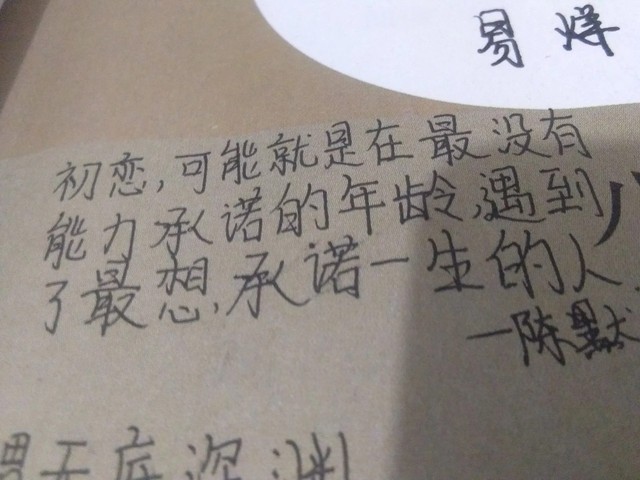 易烊
初恋,可能就是在最没有
能力承诺的年龄,遇到
了最想,承诺一生的人.
—陈默
无底深渊